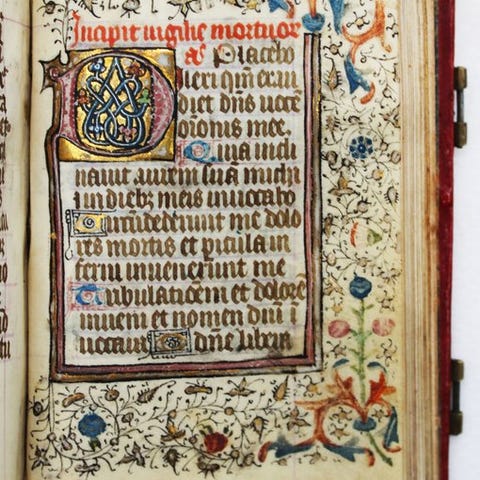 Incipit vigilie mortuor
añ Placebo
Dilexi qm̄ exau
diet dn̄s uocē
or̄onis mee.
Quia incli
nauit aurem suā michi
et in diebꝫ meis inuocabo
Circūdederunt me dolo
res mortis et picula in
ferni inuenerunt me
Tribulationem et dolorē
inueni et nomen dn̄i i
uocaui O dn̄e libera